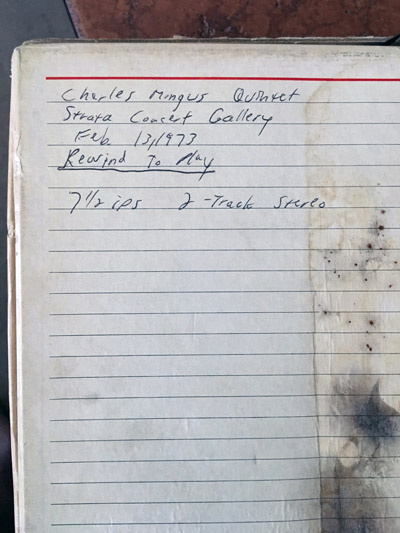 Charles Mingus Quintet
Strata Concert Gallery
Feb. 13, 1973
Rewind To Play
7 1/2 ips 2-Track Stereo